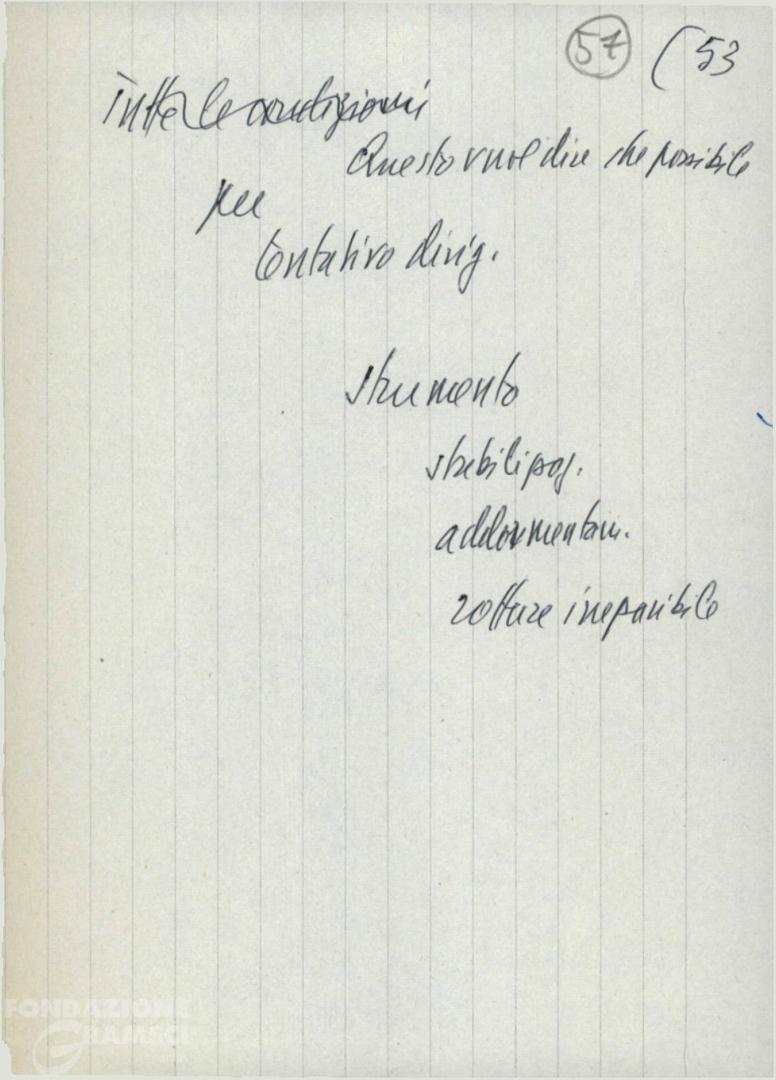 57 (53
Tutte le condizioni
Questo vuol dire che possibile
per
tentativo dirig.
strumento
stabilizzaz.
addormentam.
rottura irreparabile
FONDAZIONE
GRAMSCI